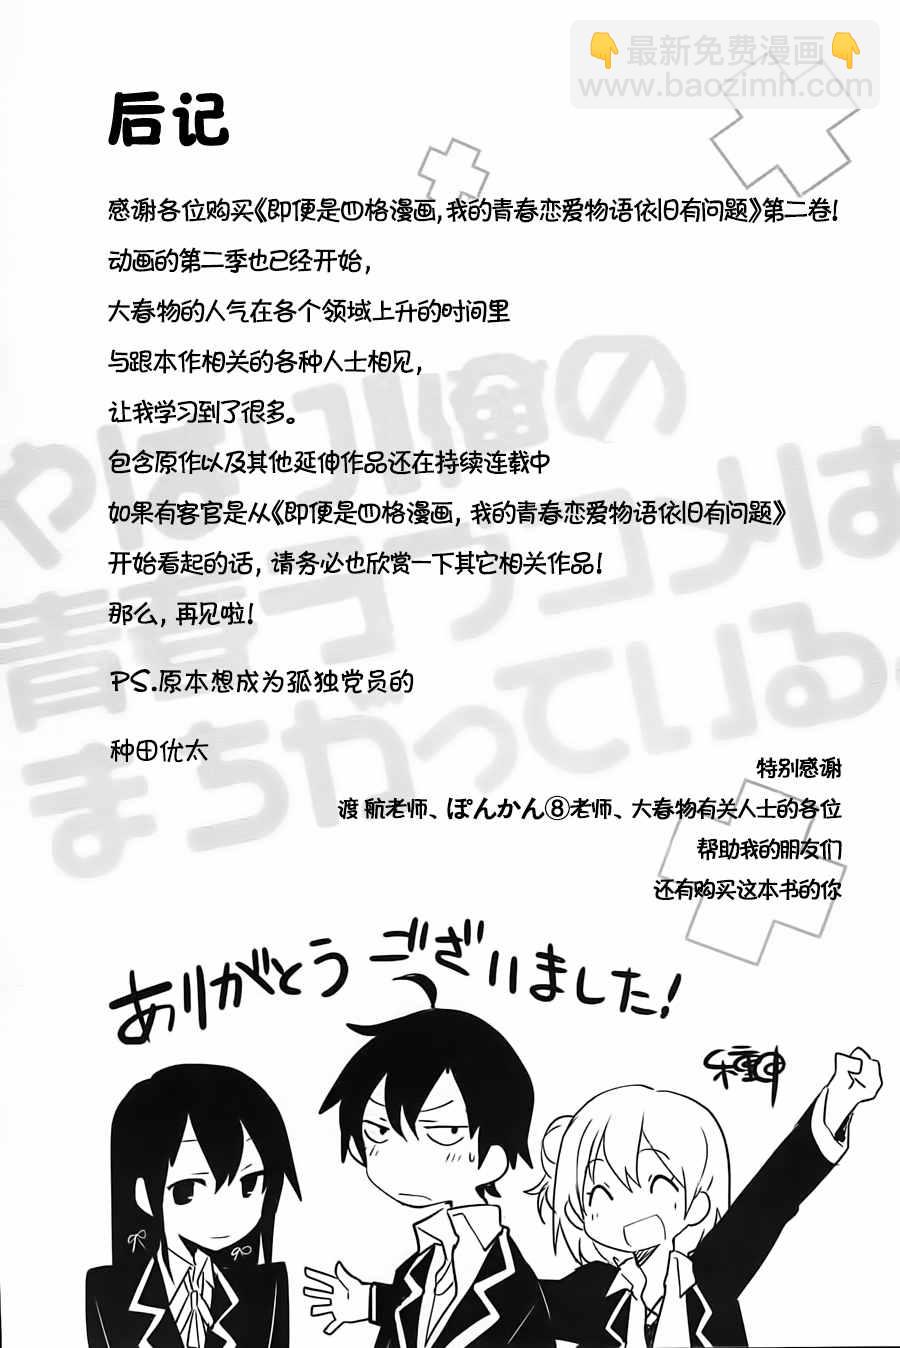 👇最新免费漫画👇
www.baozimh.com
后记
感谢各位购买《即便是四格漫画,我的青春恋爱物语依旧有问题》第二卷!
动画的第二季也已经开始,
大春物的人气在各个领域上升的时间里
与跟本作相关的各种人士相见,
让我学习到了很多。
包含原作以及其他延伸作品还在持续连载中
如果有客官是从《即便是四格漫画, 我的青春恋爱物语依旧有问题》
开始看起的话, 请务必也欣赏一下其它相关作品!
那么, 再见啦!
PS.原本想成为孤独党员的
种田优太
特别感谢
渡 航老师、ぽんかん⑧老师、大春物有关人士的各位
帮助我的朋友们
还有购买这本书的你
やはり俺の
青春ラブコメは
まちがっている。
ありがとうございました!